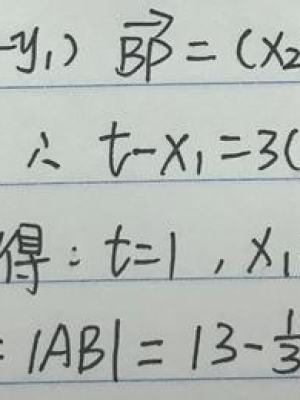 -y₁) $\overrightarrow{BP}$ = (x₂
∴ t-x₁=3(
得：t=1，x₁
: |AB| = |3-$\frac{1}{3}$